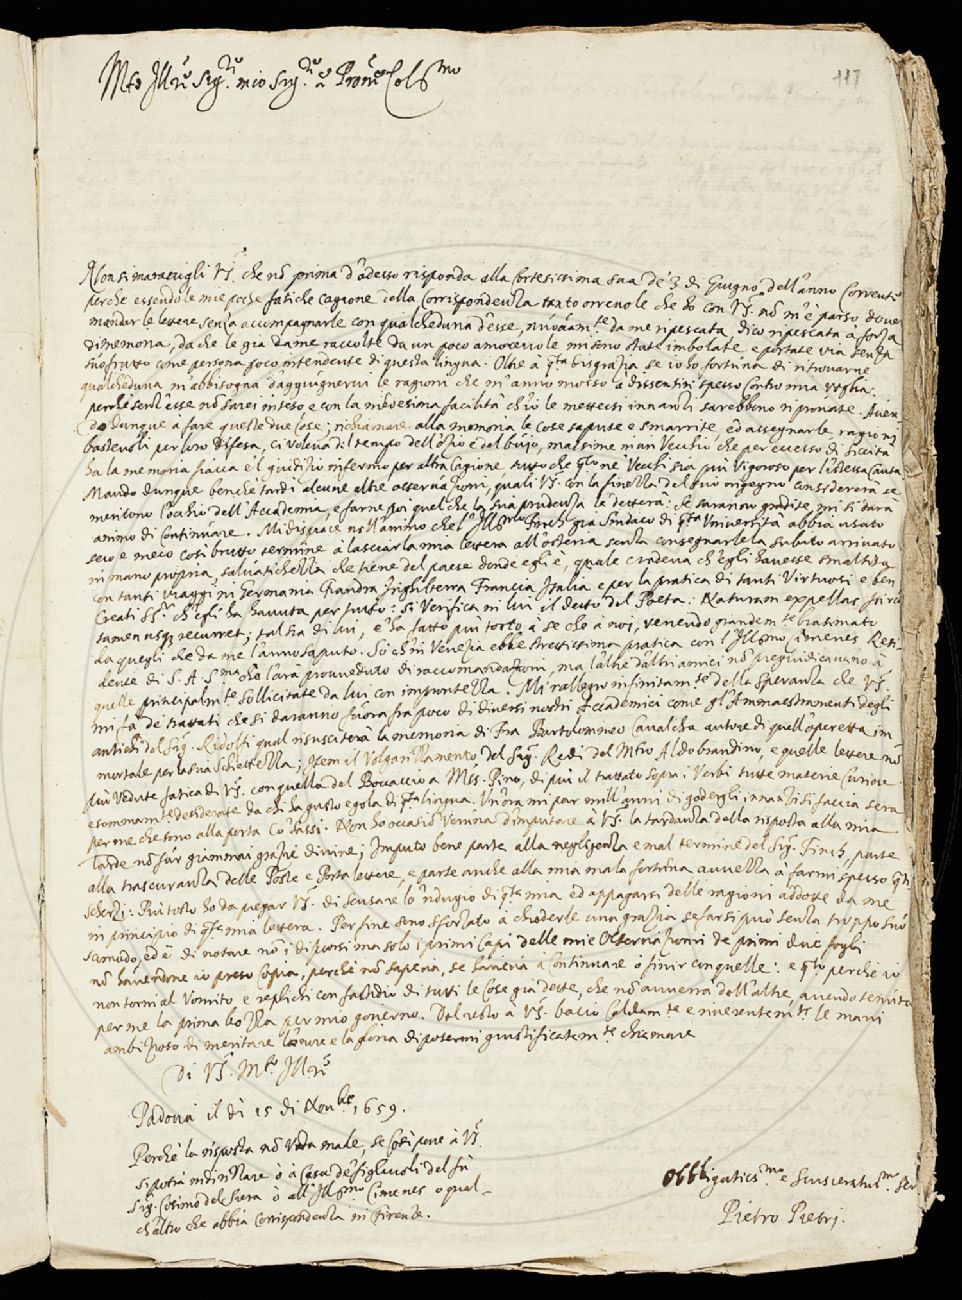 117
Mto Illre Sigre mio Sigre e Prone Colmo
Non si maravigli VS. che nō prima d'adesso risponda alla Cortesissima sua de' 3 di Giugno dell'anno Corrente
perche essendo le mie poche fatiche cagione della Corrispondenza tanto orrevole che ho con VS. nō m'è parso dover
mandar le lettere senza accompagnarle con qualcheduna d'esse, nuovamte da me ripescata, dico ripescata à forza
di memoria, da che le già da me raccolte da un poco amorevole mi sono state imbolate, e portate via senza
suo frutto come persona poco intendente di questa lingua. Oltre à qsta bisogna se io ho fortuna di ritrovarne
qualcheduna m'abbisogna d'aggiugnervi le ragioni che m'anno mosso à dissentir spesso contro mia voglia.
perche senz'esse nō sarei inteso, e con la medesima facilità ch'io le mettessi innanzi sarebbono riprovate. Aven
do dunque a fare queste due Cose; richiamare alla memoria le cose sapute e smarrite ed assegnarle ragioni
bastevoli per loro Difesa, ci voleva di tempo dell'ozio e del bujo, massime in un Vecchio che per eccesso di siccità
ha la memoria fiacca e'l giudizio infermo per altra Cagione, tutto che qlcne Vecchi sia più vigoroso per l'istessa Causa
Mando dunque benche tardi alcune altre osservazioni, quali VS. con la finezza del suo ingegno considererà se
meritono l'occhio dell'Accademia, e farne poi quel che la sua prudenza le detterà: Se saranno gradite, mi si darà
animo di Continuare. Mi dispiace nell'animo che l'Illmo Finch già Sindaco di qsta Università abbia usato
seco e meco così brutto termine à lasciar la mia lettera all'osteria senza consegnarle la subito arrivato
in mano propria, salvatichezza che tiene del paese donde egli è, quale credeva ch'egli havesse smaltita
con tanti viaggi in Germania Fiandra Inghilterra Francia Italia e per la pratica di tanti Virtuosi e ben
Creati SSri ch'egli ha havuta per tutto: si Verifica in lui il detto del Poeta: Naturam expellas furca
tamen usq; recurret; tal sia di lui, e' ha fatto più torto à se che à noi, venendo grandemte biasimato
da quegli che da me l'anno saputo. Sò ch'in Venezia ebbe strettissima pratica con l'Illmo Cimenes Resi-
dente di S. A. Sma che l'avrà provveduto di raccomandazioni, ma l'altre d'altri amici nō pregiudicavano à
quelle principalmte sollicitate da lui con importunezza. Mi rallegro infinitamte della Speranza che VS.
mi fà de' trattati che si daranno fuora fra poco di diversi nostri Accademici come gl'Ammaestramenti degli
antichi del Sig. Ridolfi qual risusciterà la memoria di Fra Bartolommeo Cavalcha autore di quell'operetta im
mortale per la sua schiettezza; Item il Volgarizzamento, del Sig. Redi del Mro Aldobrandino, e quelle lettere nō
più vedute fatica di VS. con quella del Boccaccio a Mes. Pino, di più il trattato sopra i Verbi tutte materie Curiose
e sommamte desiderate da chi ha gusto e gola di qsta lingua. Un'ora mi par mill'anni di godergli innanzi si faccia sera
per me che sono alla porta Co' sassi. Non ho occasiō veruna d'imputare à VS. la tardanza della risposta alla mia
Tarde nō fur giammai grazie divine; Imputo bene parte alla negligenza e mal termine del Sig. Finch, parte
alla trascuranza delle Poste e Porta lettere, e parte anche alla mia mala fortuna avvezza à farmi spesso qsti
scherzi: Piutosto ho da pregar VS. di scusare lo 'ndugio di qsta mia ed appagarsi delle ragioni addotte da me
in principio di qsta mia lettera. Per fine sono sforzato à chiederle una grazia se farsi può senza troppo suo
scomodo, ed è di notare nō i discorsi ma solo i primi Capi delle mie Osservazioni de primi due fogli
nō havendone io preso Copia, perche nō sapeva, se haveva à Continuare ò finir con quelle: e qsto perche io
non torni al Vomito e replichi con fastidio di tutti le Cose già dette, che nō avverrà dell'altre, avendo tenuto
per me la prima bozza per mio governo. Del resto a VS. bacio Caldamte e riverentemte le mani
ambizioso di meritare l'onore e la gloria di potermi giustificatemte chiamare
Di VS. Mto Illre
Padova il dì 15 di Novbre 1659.
Perche la risposta nō vada male, se Così pare à VS.
si potrà indirizzare ò à Casa de' figliuoli del fù
Sig. Cosimo del Sera ò all'Illmo Cimenes o qual-
ch'altro che abbia Corrispondenza in Firenze.
Obbligatissmo e Svisceratissmo Ser
Pietro Pietri.